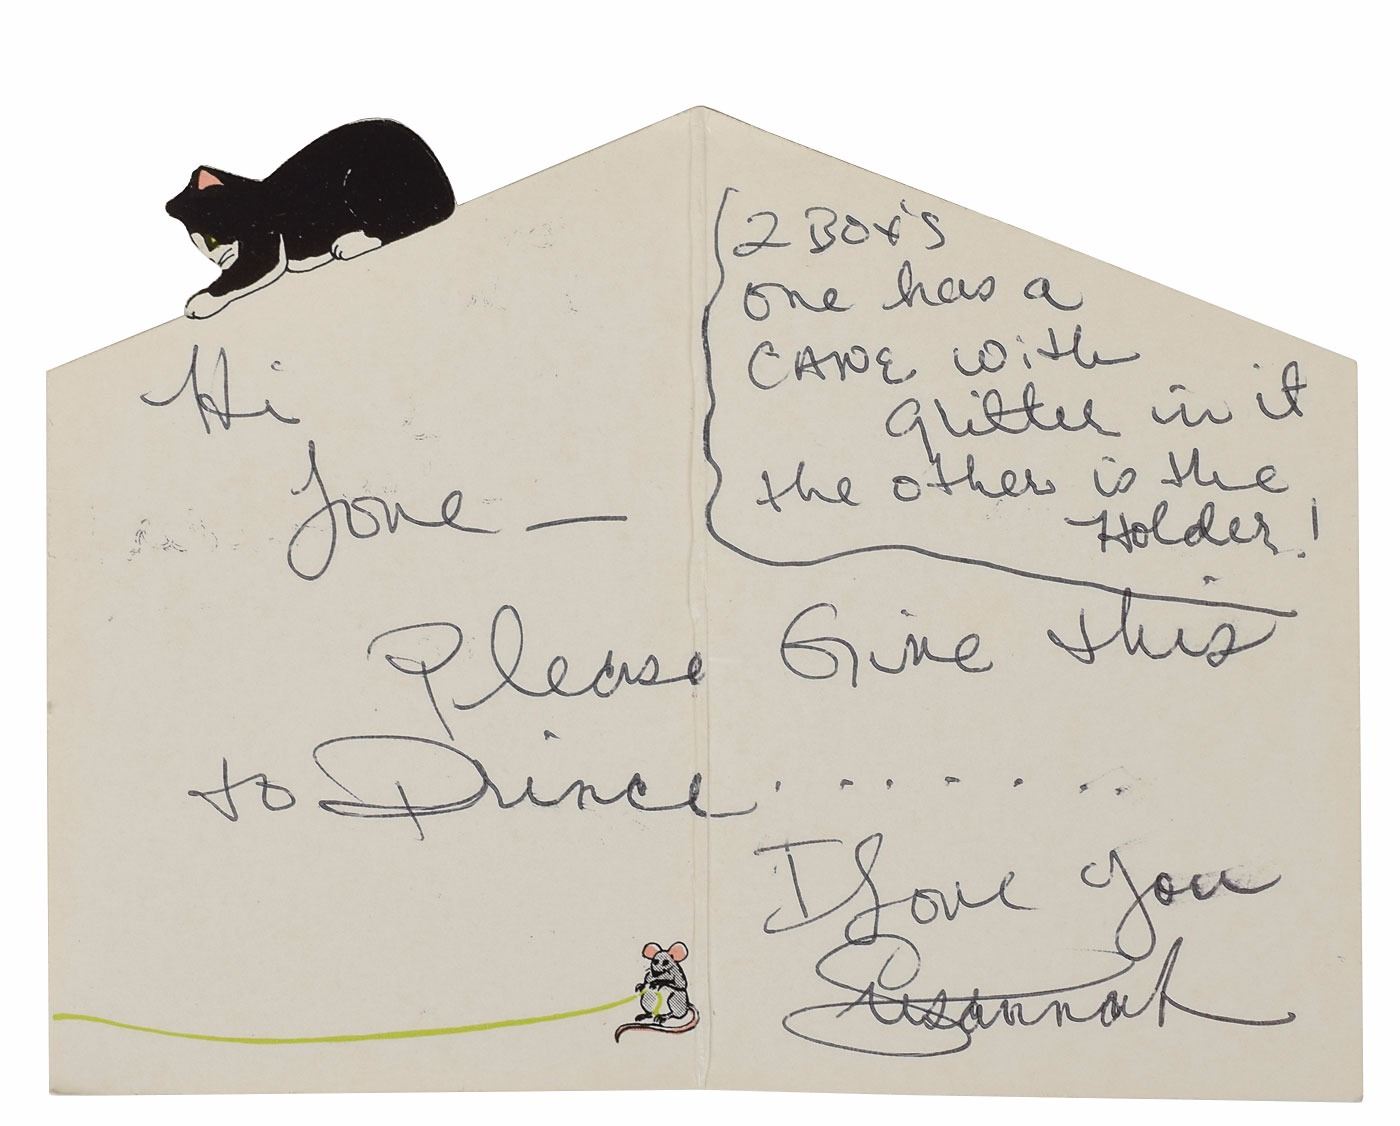 Hi
Love —
2 Box's
one has a
CANE with
Glitter in it
the other is the
Holder!
Please Give this
to Prince . . . . . . .
I Love You
Susannah